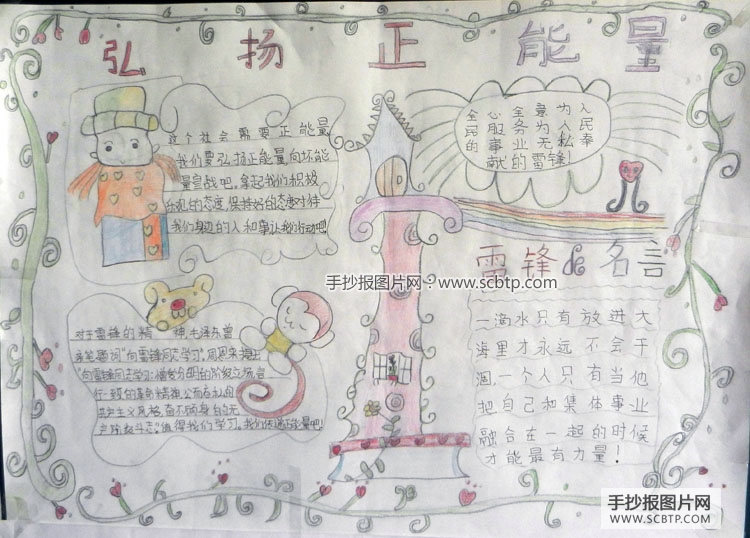 弘扬正能量
这个社会需要正能量
我们要弘扬正能量,向坏能
量宣战吧,拿起我们积极
乐观的态度,保持好的态度对待
我们身边的人和事让我们行动吧
全心全意为人
民服务为人民
的事业无私奉
献的雷锋!
手抄报图片网:www.scbtp.com
雷锋de名言
一滴水只有放进大
海里才永远不会干
涸,一个人只有当他
把自己和集体事业
融合在一起的时候
才能最有力量!
对于雷锋的精神毛泽东曾
亲笔题词"向雷锋同志学习",周恩来提出
"向雷锋同志学习:憎爱分明的阶级立场,言
行一致的革命精神,公而忘私的
共产主义风格,奋不顾身的无
产阶级斗志"值得我们学习。
手抄报图片网
WWW.SCBTP.COM